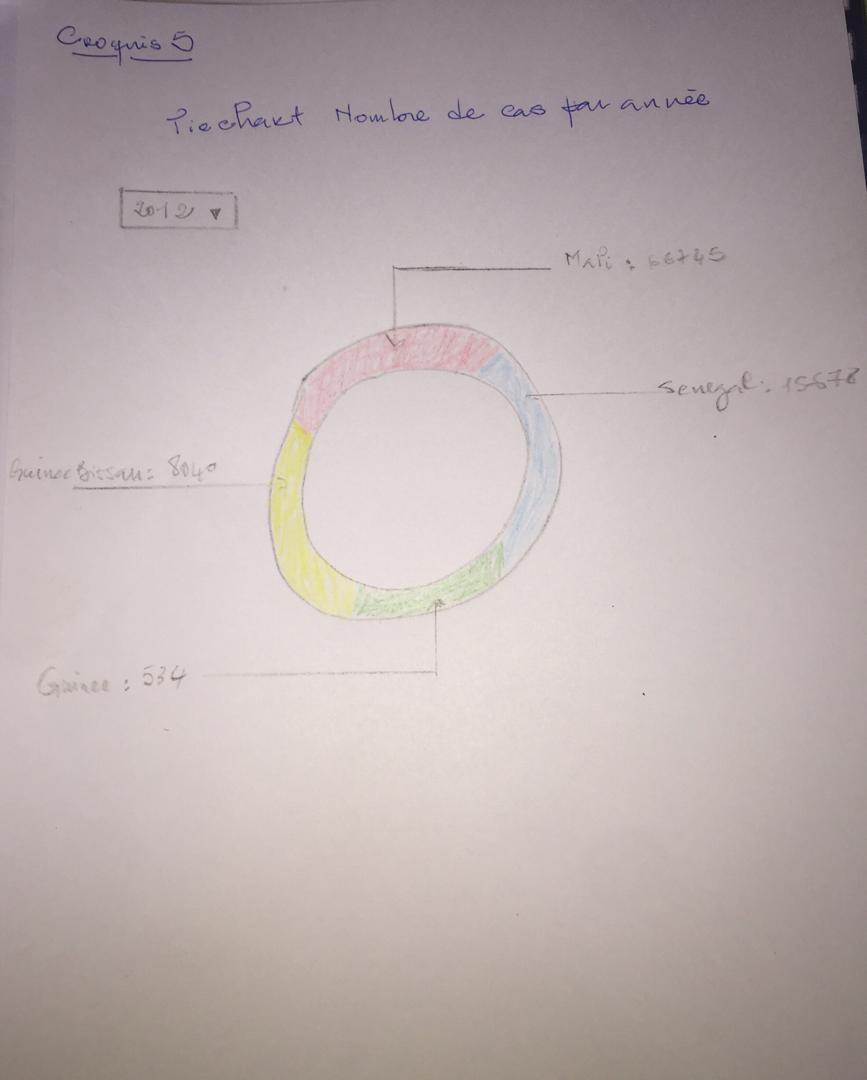 Croquis 5
Piechart Nombre de cas par année
2012
Mali : 66745
Senegal : 15678
Guinee Bissau : 8040
Guinee : 534